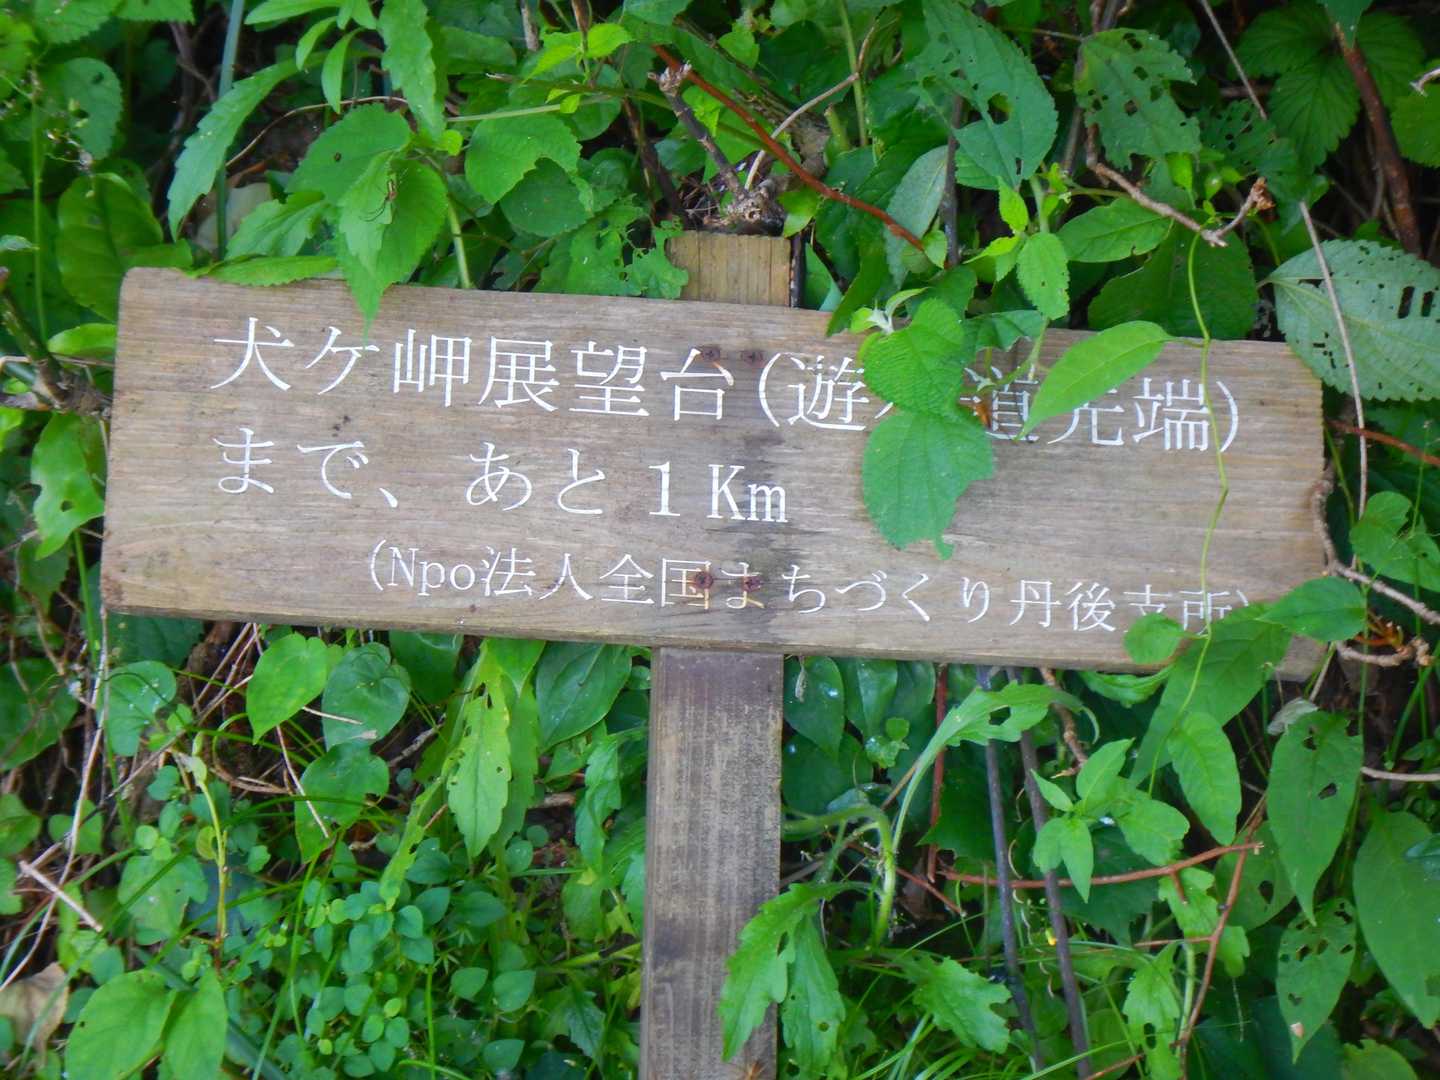 犬ケ岬展望台(遊歩道先端)
まで、あと1Km
(Npo法人全国まちづくり丹後支所)